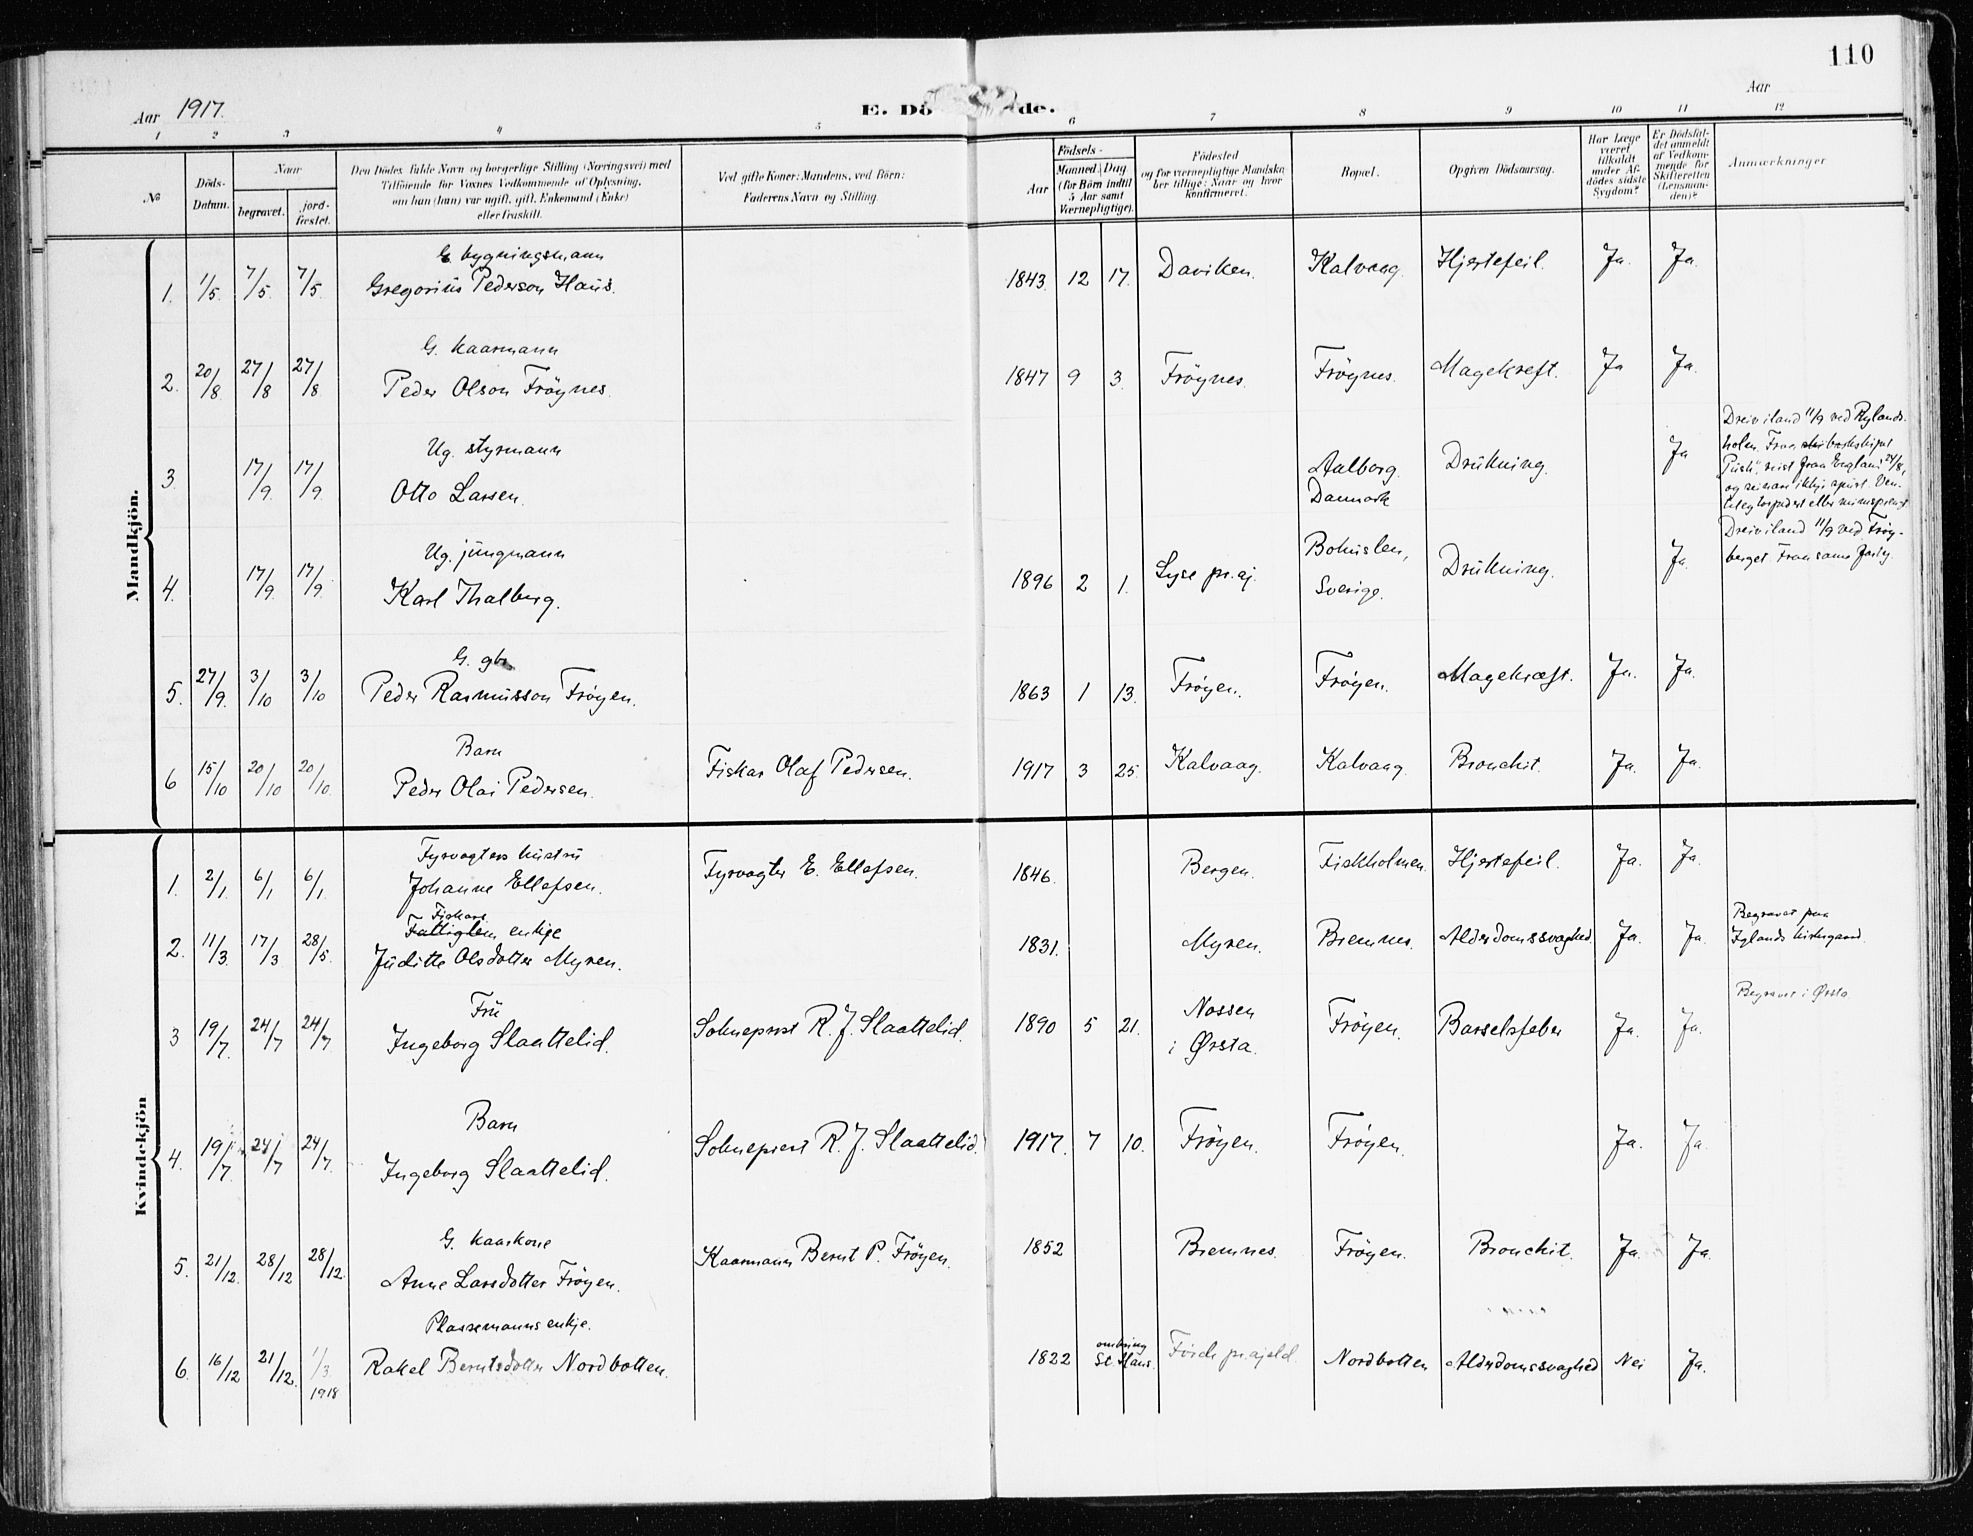 110
Aar 1917.
E. Dö de.
Aar
1 2 3 4 5 6 7 8 9 10 11 12
№
Döds-Datum.
Naar
begravet.
jord-fæstet.
Den Dödes fulde Navn og borgerlige Stilling (Næringsvei) med
Tilföiende for Voxnes Vedkommende af Oplysning,
om hun (han) var ugift, gift, Enkemand (Enke)
eller fraskilt.
Ved gifte Koner: Mandens, ved Börn:
Faderens Navn og Stilling
Aar
Födsels-
Maaned. Dag
(for Börn indtil
5 Aar samt
Værnepligtige).
Födested
og for værnepligtige Mandska-
ber tillige: Naar og hvor
konfirmeret.
Bopæl.
Opgiven Dödsaarsag.
Har Læge
været
tilkaldt
under Af-
dödes sidste
Sygdom?
Er Dödsfal-
det anmeldt
af Vedkom-
mende for
Skifteretten
(Lensman-
den)?
Anmærkninger
Mandkjön.
G. bygningsmann
1. 1/5. 7/5. 7/5. Gregorius Pederson Haus. 1843. 12 17. Daviken. Kalvaag. Hjertefeil. Ja. Ja.
G. kaarmann
2. 20/8 27/8 27/8. Peder Olson Fröynes. 1847 9 3. Fröynes. Fröynes. Magekreft. Ja Ja.
Ug. styrmann
3 17/9. 17/9. Otto Larsen. Aalborg. Danmark Drukning. Ja
Dreiv iland 11/9 ved Rylands-
holen. Fraa barkskipet
reist fraa England 24/8,
og seinare ikkje spurt. Ven-
teleg torpedert eller minesprengt
Ug. jungmann
4. 17/9. 17/9. Karl Thalberg. 1896 2 1. Lyse pr.gj. Bohuslen, Sverige. Drukning. Ja.
Dreiv iland 11/9 ved Fröy-
berget. Fraa same farty
G. gbr.
5. 27/9. 3/10 3/10 Peder Rasmusson Fröyen. 1863 1 13. Fröyen. Fröyen. Magekræft. Ja. Ja.
Barn
6 15/10 20/10 20/10. Peder Olai Pedersen. Fiskar Olaf Pedersen. 1917 3 25. Kalvaag. Kalvaag. Bronchit. Ja. Ja.
Kvindekjön
Fyrvagters hustru
1. 2/1. 6/1 6/1. Johanne Ellefsen. Fyrvagter E. Ellefsen. 1846. Bergen. Fiskholmen. Hjertefeil. Ja. Ja.
Fiskars
Fattiglem enkje
2. 11/3. 17/3 28/5. Juditte Olsdotter Myren. 1831. Myren. Bremnes. Alderdomssvaghed. Ja. Ja.
Begravet paa
kirkegaard.
Fru
3 19/7. 24/7 24/7. Ingeborg Slaattelid. Sokneprest R. J. Slaattelid. 1890 5 21. Nossen i Ørsta. Fröyen. Barselsfeber Ja. Ja.
Begravet i Ørsta.
Barn
4. 19/7. 24/7 24/7. Ingeborg Slaattelid. Sokneprest R. J. Slaattelid. 1917. 7 10. Fröyen. Fröyen. Ja. Ja.
G. kaarkone
5. 21/12. 28/12 28/12. Anne Larsdotter Fröyen. Kaarmann Bernt P. Fröyen. 1852 Bremnes. Fröyen. Bronchit. Ja. Ja.
Plassemanns enkje.
6. 16/12 21/12. 1/3. 1918 Rakel Berntsdotter Nordbotten. 1822 omkring St. Hans. Förde pr.gjeld. Nordbotten Alderdomssvaghed Nei Ja.